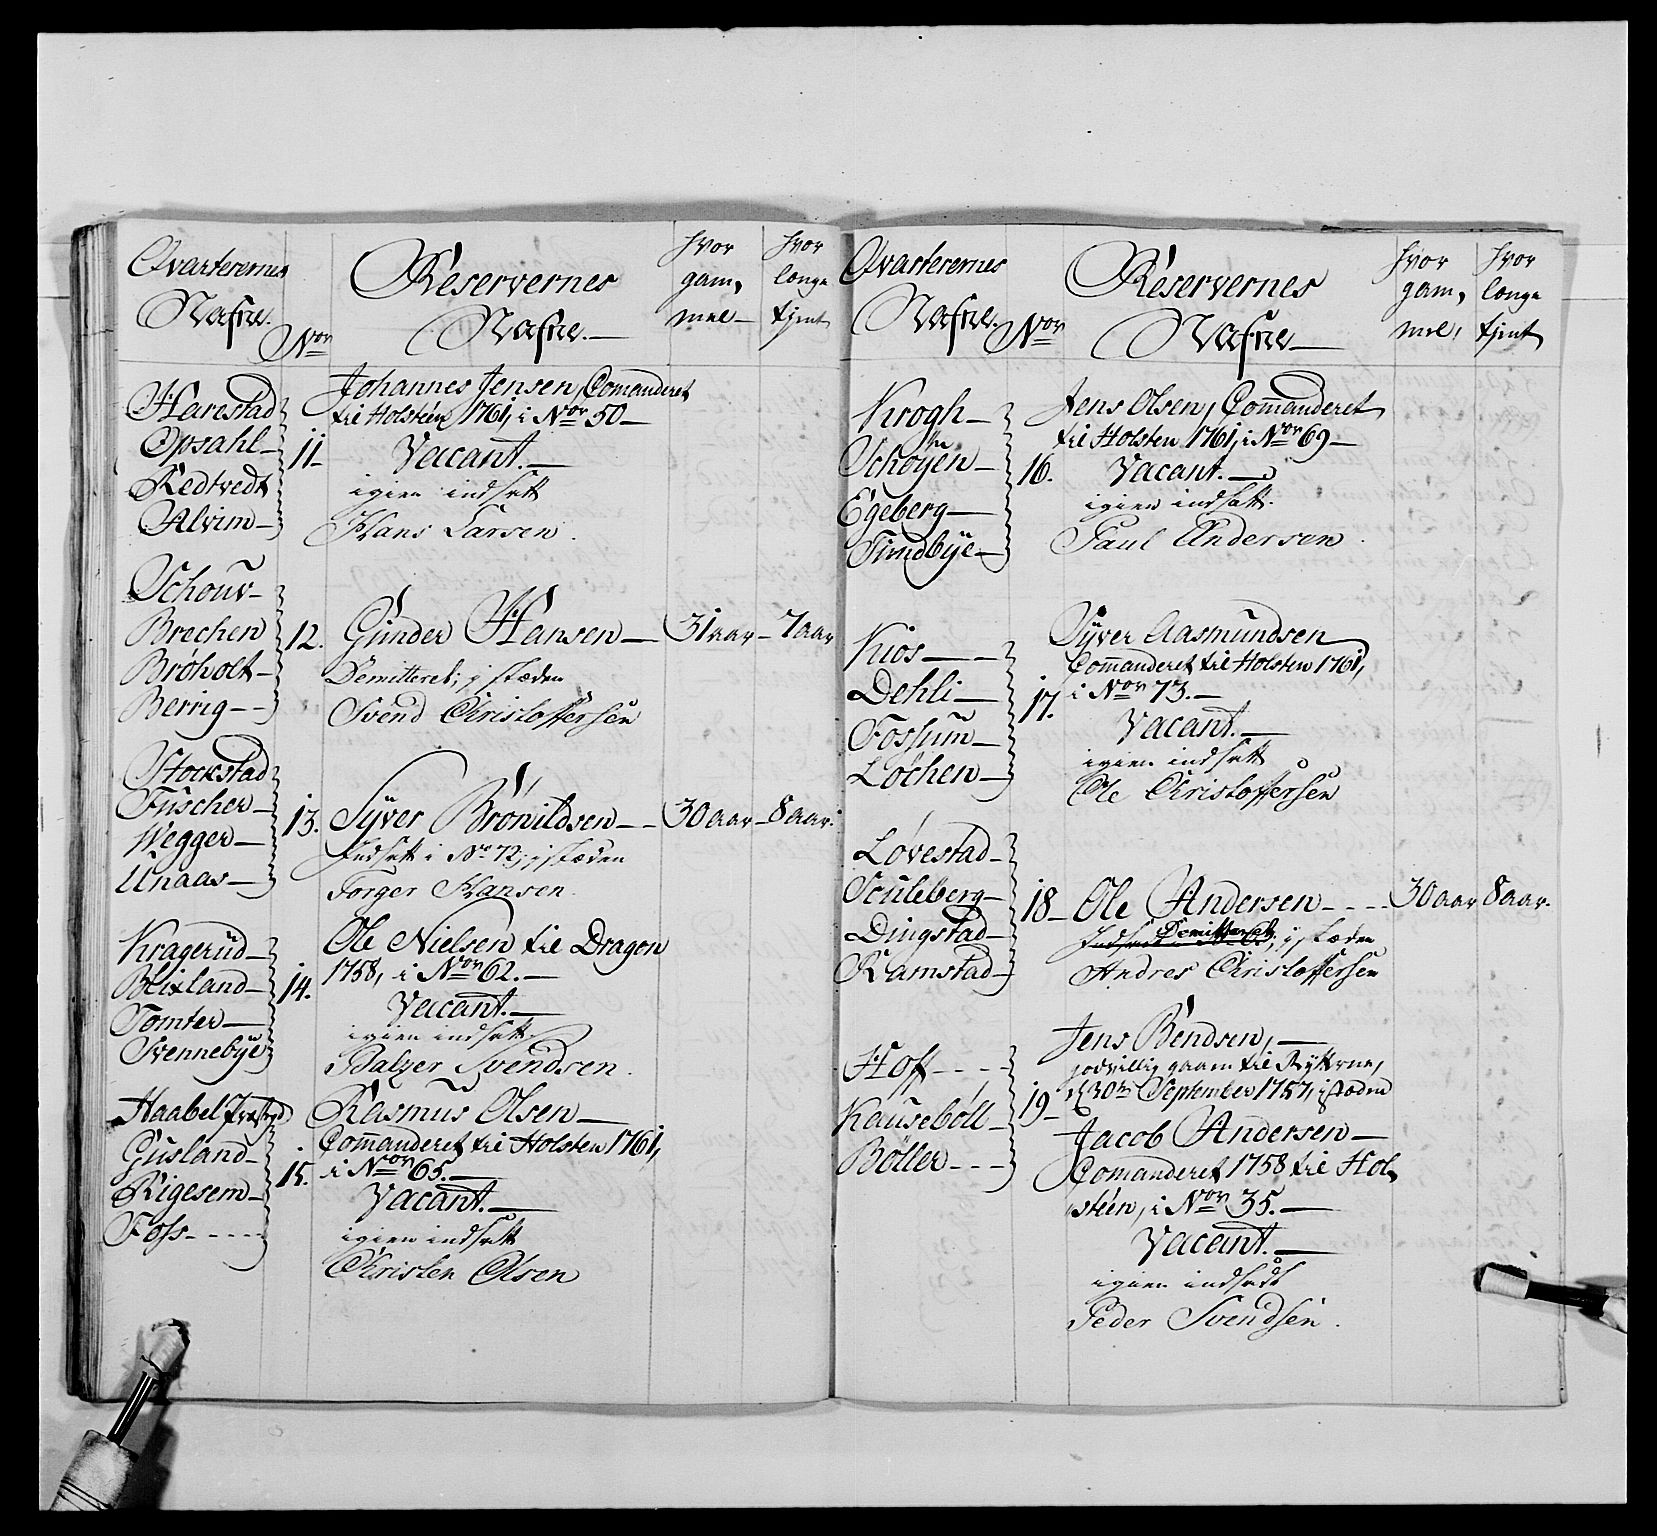 Qvarterernes
Nafne.
Nor
Reservernes
Nafne.—
hvor
gam,
mel—
hvor
længe
tjent
Harestad
Opsahl—
Kedtvedt
Alvim—
11—
Johannes Jensen, Comanderet
til Holsteen 1761, i Nor 50—
Vacant.—
igien indsatt
Hans Larsen.
Schouv—
Brechen
Brøholt—
Berrig—
12.
Günder Hansen—
31 aar—
7 aar
Demitteret; i stæden
Svend Christoffersen
Stockstad
Füscher—
Wegger—
Unaas—
13.
Syver Brønildsen—
30 aar—
8 aar.
Indsatt i No 72; i stæden
Torger Hansen.
Kragerüd—
Blixland—
Tomter—
Svennebÿe
14.
Ole Nielsen til Dragon
1758, i Nor 62.—
Vacant.—
igien indsatt
Balzer Svendsen.
Haabel
Gusland—
Rigesem—
Foss-----
15.
Rasmus Olsen—
Commanderet til Holsten 1761,
i Nor 65.—
Vacant.—
igien indsatt
Christen Olsen
Qvarterernes
Nafne.
Nor
Reservernes
Nafne—
hvor
gam,
mel,
hvor
længe
tjent
Krogh—
Schøyen—
Egeberg—
Timdbÿe—
16.
Jens Olsen, Commanderet
til Holsten 1761, i Nor 69—
Vacant.—
igien indsatt.
Paul Andersen.
Kios—
Dehli—
Fossum—
Løchen—
17.
Syver Aasmundsen
Commanderet til Holsten 1761,
i Nor 73.—
Vacant.—
igien indsatt
Ole Christoffersen
Løvestad—
Sculeberg—
Dingstad—
Ramstad—
18—
Ole Andersen----
30 aar
8 aar.
Demitteret
i stæden
Andres Christoffersen
Hoff----
Kausebøll—
Bøller---
19—
Jens Bendsen,—
godvillig gaaen til Rÿtterne,
d 30te September 1757, i stæden
Jacob Andersen—
Comanderet 1758 til Hol,
steen, i Nor 35.—
Vacant.—
igien indsadt
Peder Svendsen.